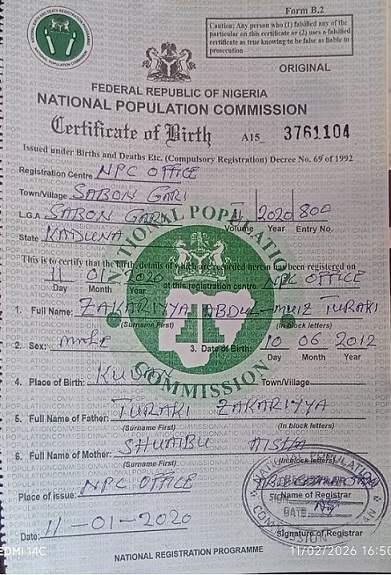 Form B.2
Caution: Any person who (1) falsified any of the
particular on this certificate or (2) uses a falsified
certificate as true knowing to be false as liable to
prosecution
ORIGINAL
FEDERAL REPUBLIC OF NIGERIA
NATIONAL POPULATION COMMISSION
Certificate of Birth A15 3761104
Issued under Births and Deaths Etc. (Compulsory Registration) Decree No. 69 of 1992
Registration Centre NPC OFFICE
Town/Village SABON GARI
L.G.A SABON GARI 2020 800
Volume Year Entry No.
State KADUNA
This is to certify that the birth details of which are recorded herein has been registered on
11 01 at this registration centre NPC OFFICE
Day Month Year
1. Full Name: ZAKARIYYA ABDUL-MUIZ TURAKI
(Surname First) (In block letters)
2. Sex: male 3. Date of Birth: 10 06 2012
Day Month Year
4. Place of Birth: KUDAN Town/Village
5. Full Name of Father: TURAKI ZAKARIYYA
(Surname First) (In block letters)
6. Full Name of Mother: SHUAIBU AISHA
(Surname First) (In block letters)
Place of issue: NPC OFFICE
Name of Registrar
Date: 11-01-2020
Signature of Registrar
NATIONAL REGISTRATION PROGRAMME
REDMI 14C 11/02/2026 16:50
NATIONAL POPULATION
COMMISSION